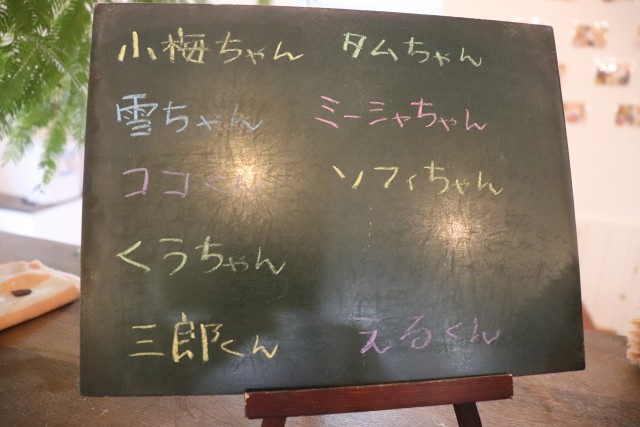 小梅ちゃん
タムちゃん
雪ちゃん
ミーシャちゃん
ココくん
ソフィちゃん
くうちゃん
三郎くん
えるくん